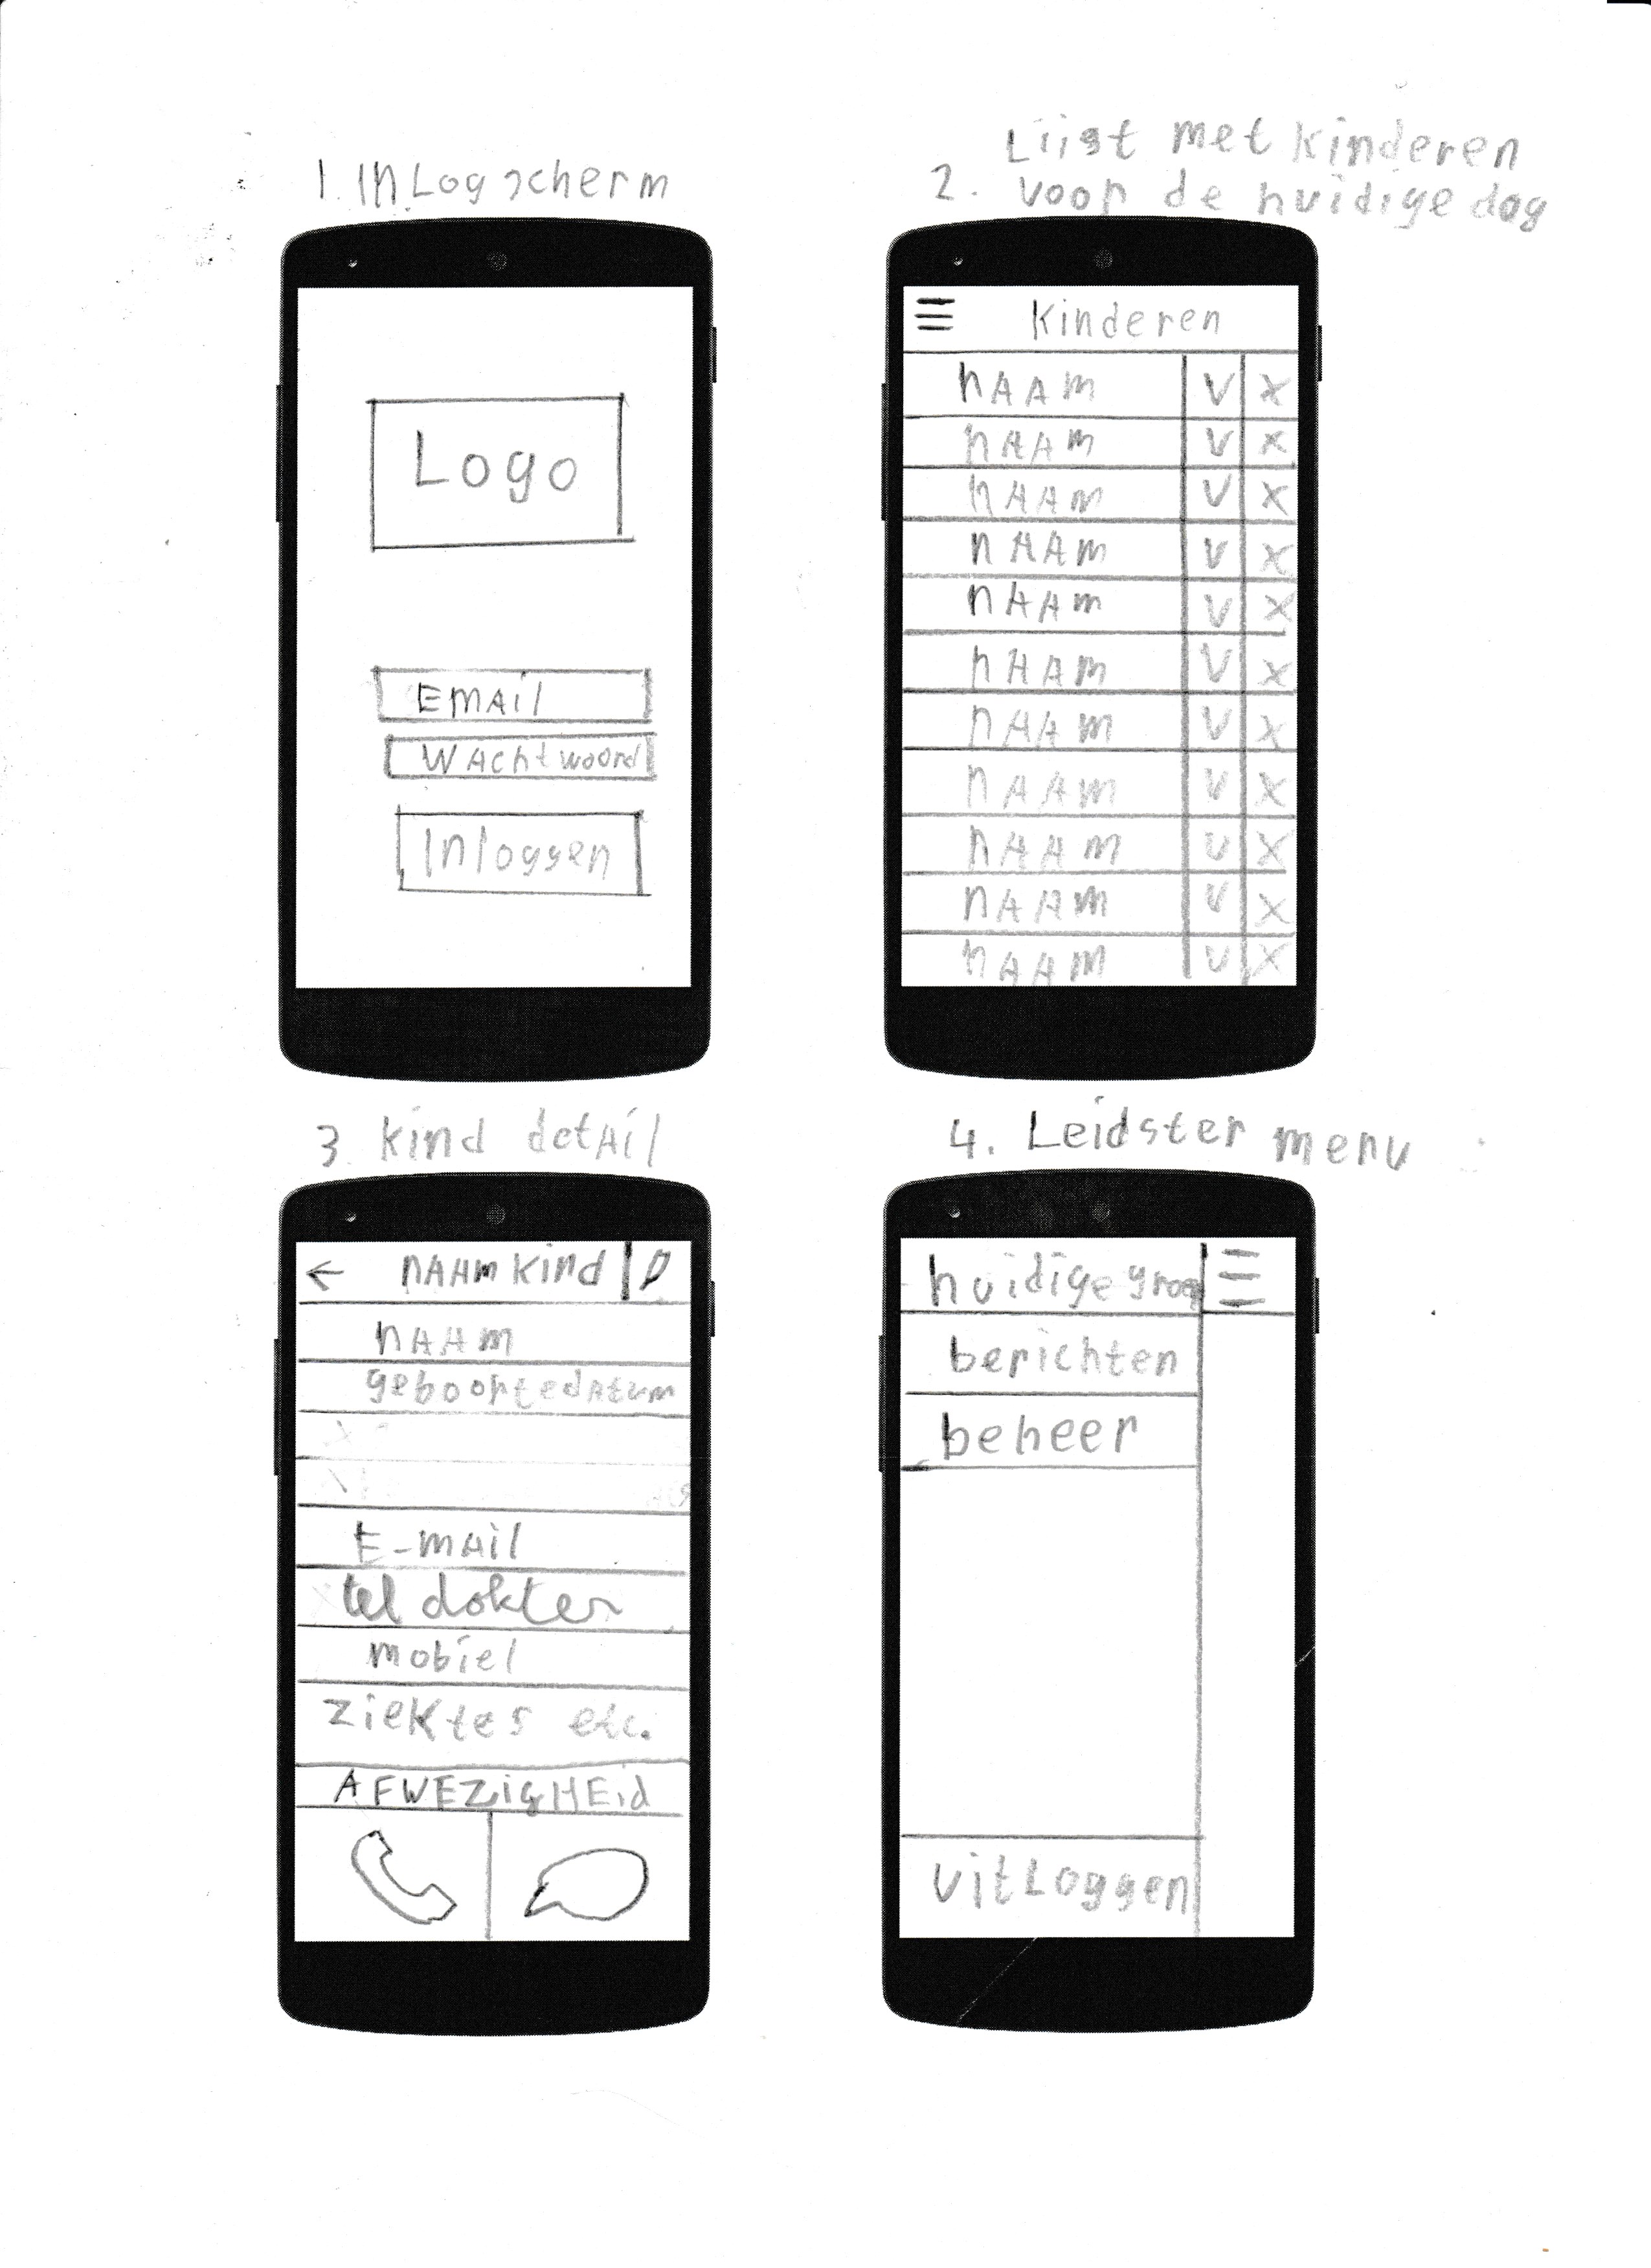 1. InLogscherm
Lijst met kinderen
2. voor de huidige dag
Logo
EMAil
WAchtwoord
Inloggen
Kinderen
nAAm V X
nAAm V X
nAAm V X
nAAm V X
nAAm V X
nAAm V X
nAAm V X
nAAm V X
nAAm V X
nAAm V X
nAAm V X
3. kind detAil
nAAm kind
nAAm
geboortedAtum
E-mAil
tel dokter
mobiel
ziektes etc.
AFWEZigHEid
4. Leidster menu
huidige groep
berichten
beheer
uitLoggen